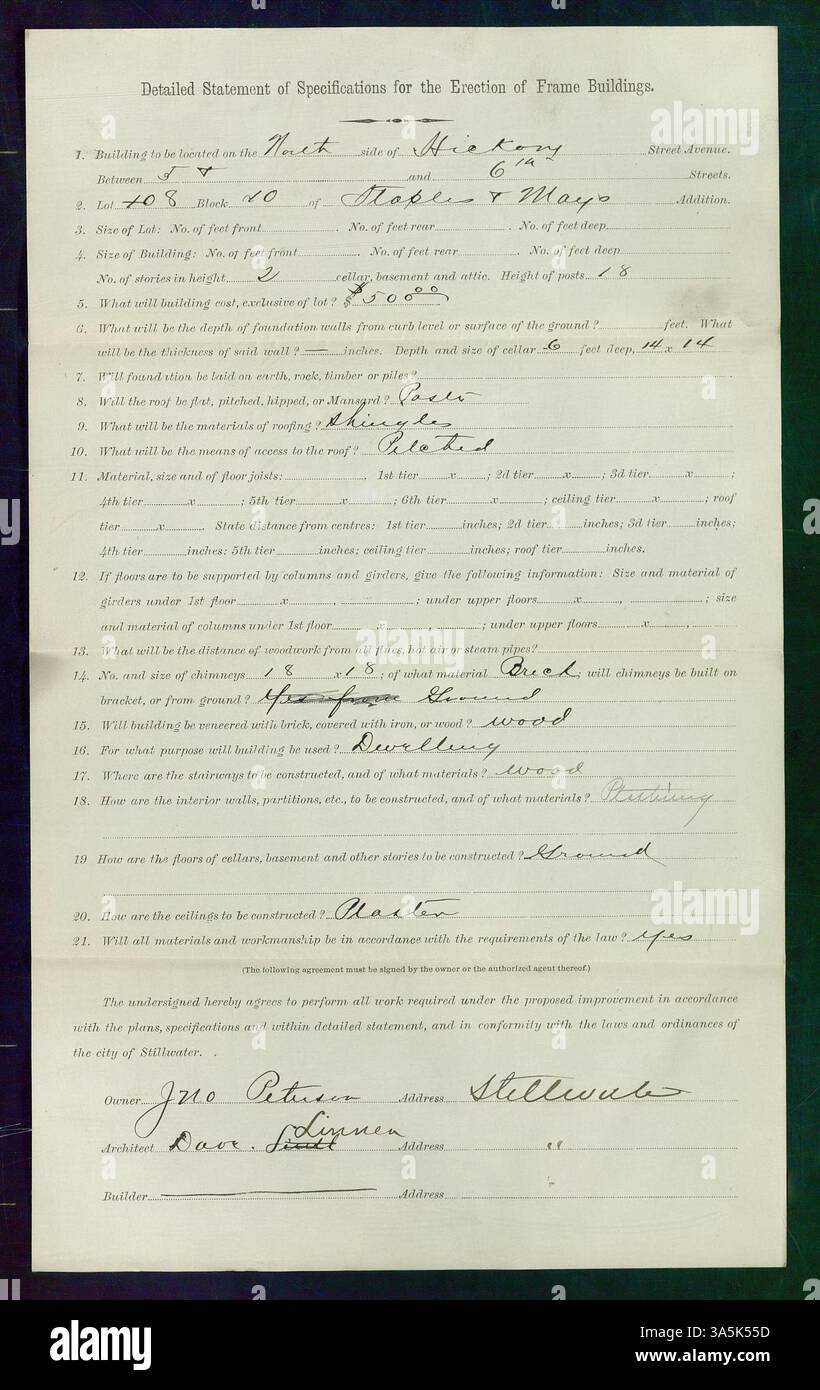 Detailed Statement of Specifications for the Erection of Frame Buildings.
1. Building to be located on the North side of Hickory Street Avenue.
Between 5 + and 6th Streets.
2. Lot 8 Block 10 of Staples & Mays Addition.
3. Size of Lot: No. of feet front . No. of feet rear . No. of feet deep
4. Size of Building: No. of feet front . No. of feet rear . No. of feet deep
No. of stories in height 2 cellar, basement and attic. Height of posts 18
5. What will building cost, exclusive of lot? $ 500 00
6. What will be the depth of foundation walls from curb level or surface of the ground? feet. What
will be the thickness of said wall? — inches. Depth and size of cellar 6 feet deep, 14 x 14
7. Will foundation be laid on earth, rock, timber or piles?
8. Will the roof be flat, pitched, hipped, or Mansard?
9. What will be the materials of roofing? Shingles
10. What will be the means of access to the roof? Pitched
11. Material, size and of floor joists: . 1st tier x ; 2d tier x ; 3d tier x ;
4th tier x ; 5th tier x ; 6th tier x ; ceiling tier x ; roof
tier x . State distance from centres: 1st tier inches; 2d tier inches; 3d tier inches;
4th tier inches: 5th tier inches; ceiling tier inches; roof tier inches.
12. If floors are to be supported by columns and girders, give the following information: Size and material of
girders under 1st floor x , ; under upper floors x , ; size
and material of columns under 1st floor x , ; under upper floors x ,
13. What will be the distance of woodwork from all flues, hot air or steam pipes?
14. No. and size of chimneys 18 x 18 ; of what material Brick ; will chimneys be built on
bracket, or from ground? Yes from Ground
15. Will building be veneered with brick, covered with iron, or wood? Wood
16. For what purpose will building be used? Dwelling
17. Where are the stairways to be constructed, and of what materials? Wood
18. How are the interior walls, partitions, etc., to be constructed, and of what materials?
19 How are the floors of cellars, basement and other stories to be constructed? Ground
20. How are the ceilings to be constructed? Plaster
21. Will all materials and workmanship be in accordance with the requirements of the law? Yes
(The following agreement must be signed by the owner or the authorized agent thereof.)
The undersigned hereby agrees to perform all work required under the proposed improvement in accordance
with the plans, specifications and within detailed statement, and in conformity with the laws and ordinances of
the city of Stillwater.
Owner Jno Peterson Address Stillwater
Architect Dave. Linnen Address "
Builder — Address "
alamy
alamy
Image ID: 3A5K55D
www.alamy.com